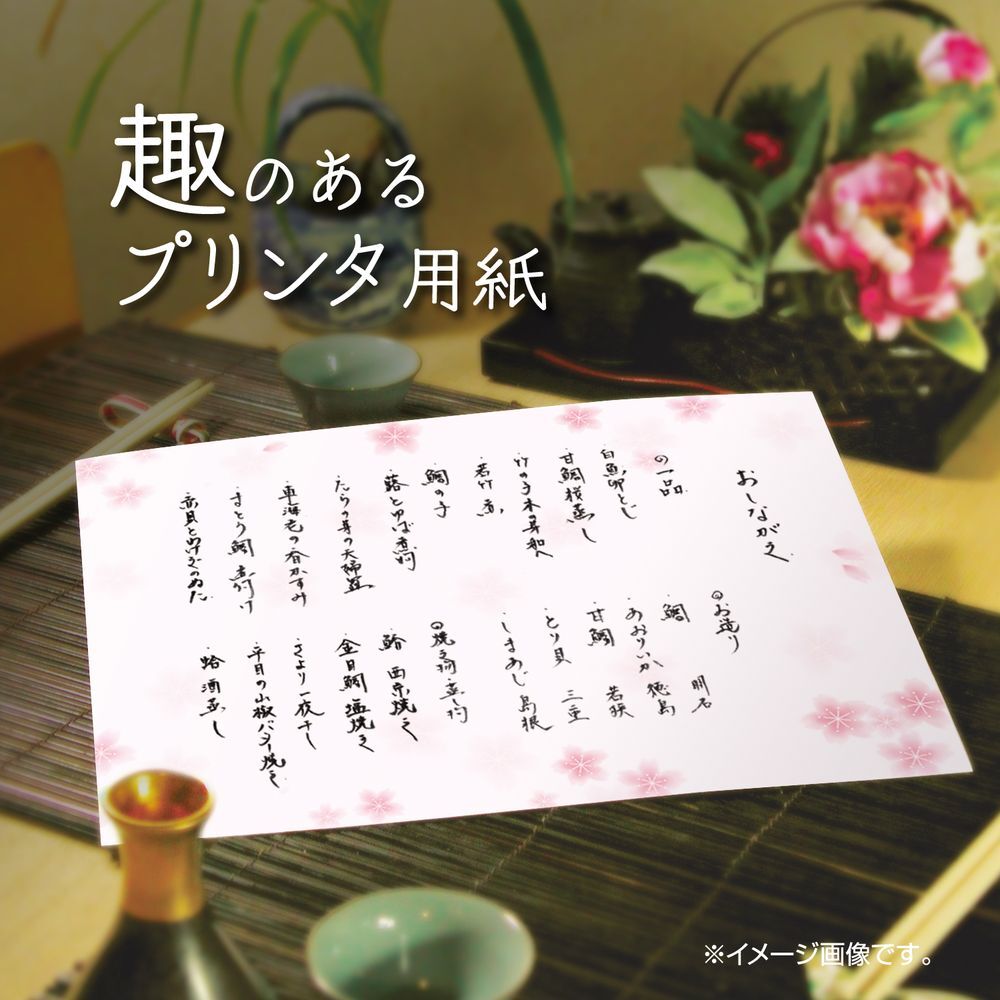 趣のある
プリンタ用紙
おしながき
の一品
白魚卵とじ
甘鯛桜蒸し
竹の子木の芽和へ
若竹煮
鯛の子
蕗とゆば煮物
たらの芽の天婦羅
車海老の香かすみ
さとう鯛煮付け
赤貝とわけぎのぬた
お造り
鯛 明石
あおりいか 徳島
甘鯛 若狭
とり貝 三重
しまあじ 島根
焼き物蒸し物
鰆 西京焼き
金目鯛 塩焼き
さより一夜干し
平目の山椒バター焼き
蛤酒蒸し
※イメージ画像です。